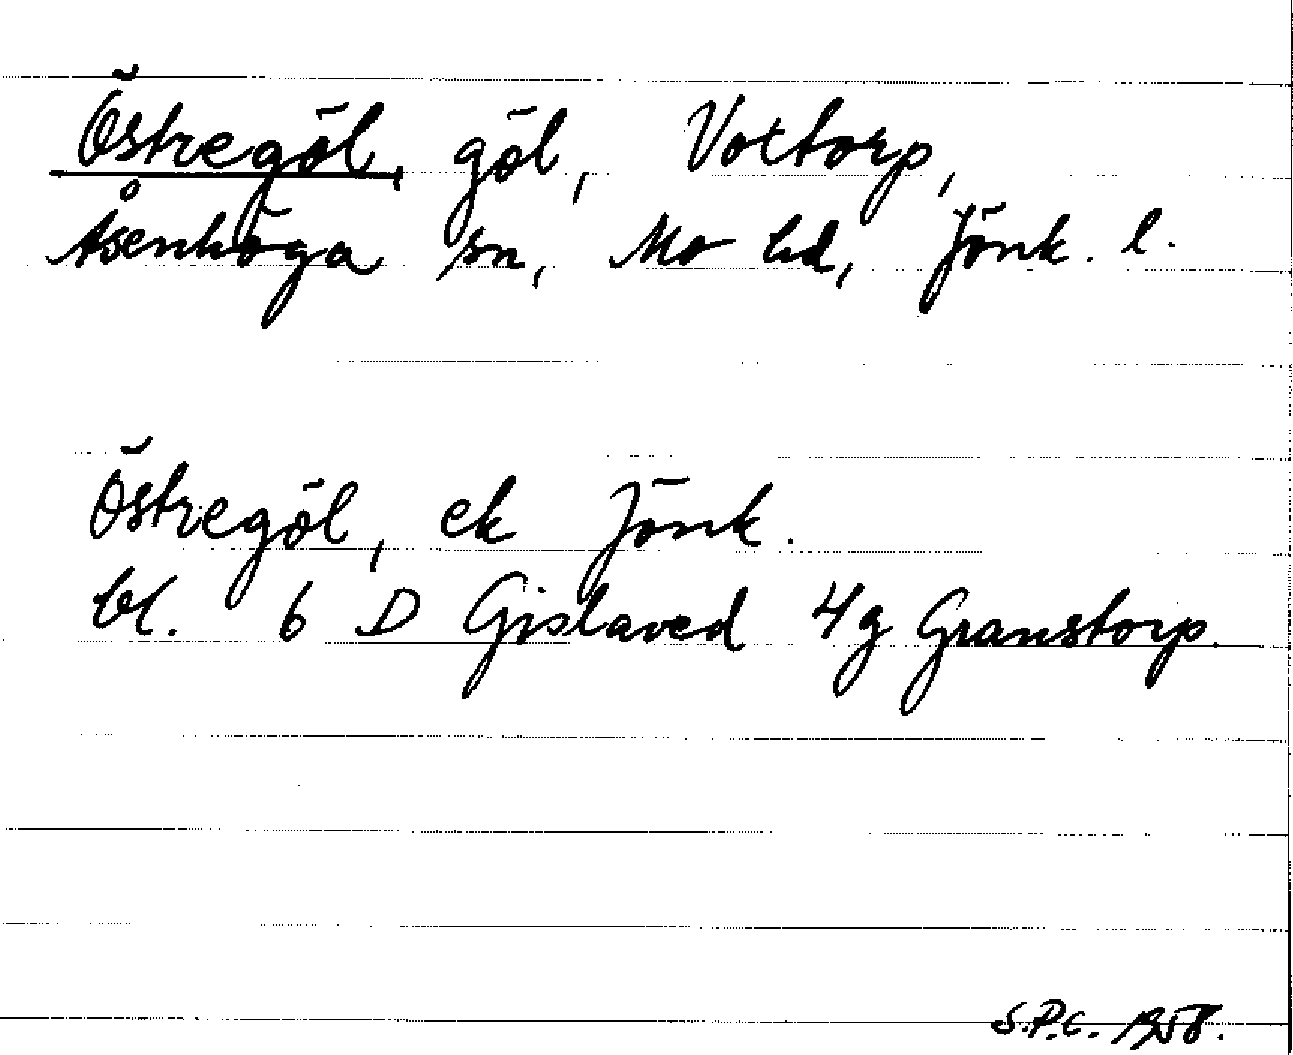 Östregöl, göl, Vottorp,
Åsenhöga sn, Mo hd, Jönk. l.
Östregöl, ek Jönk.
bl. 6 D Gislaved 4g Granstorp.
S.P.C. 1958.